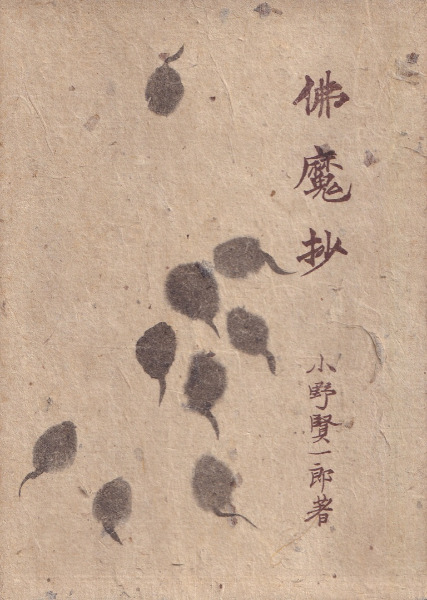 佛魔抄
小野賢一郎著